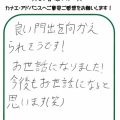 カナエ・アドバンスへご意見ご感想をお願いします!
良い門出を向かえ
られそうです!
お世話になりました!
今後もお世話になると
思います(笑)